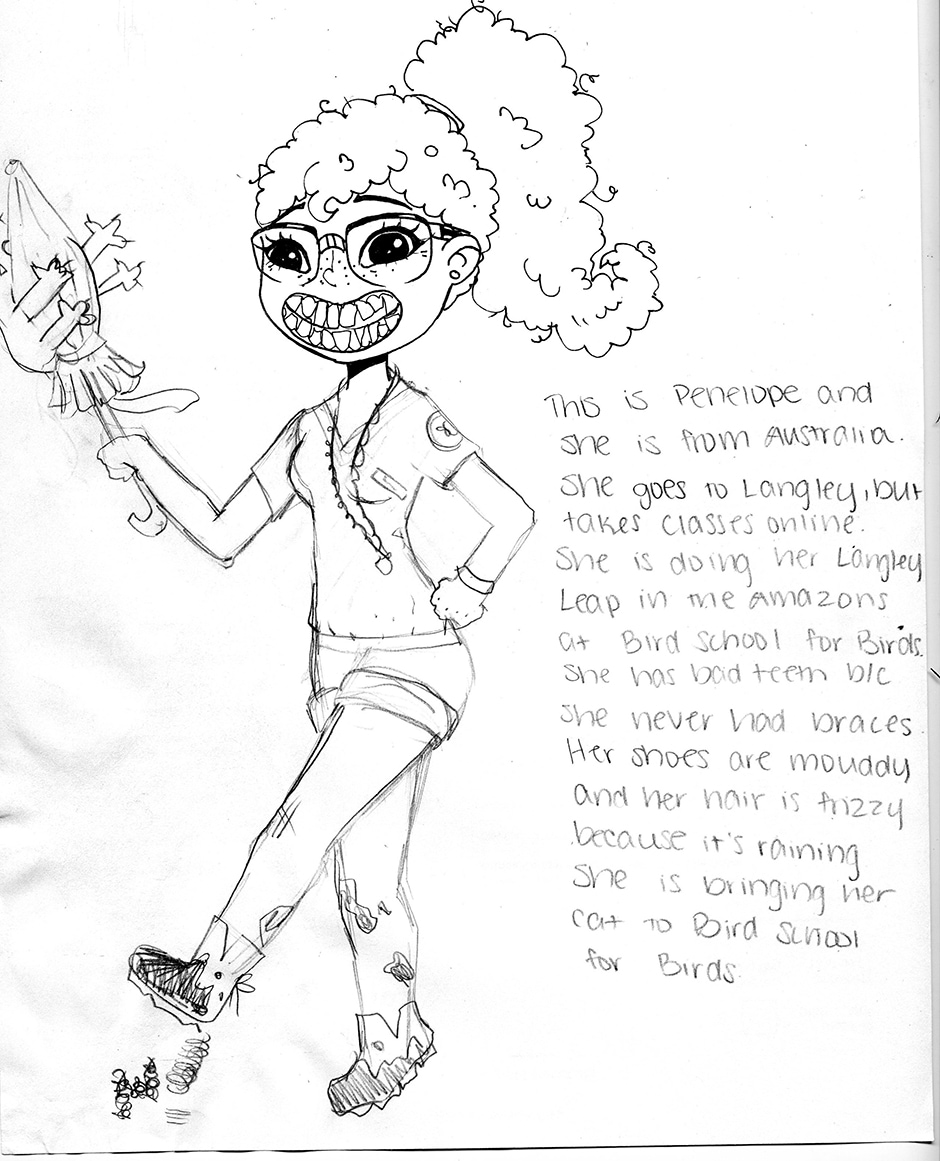 This is Penelope and
she is from Australia.
She goes to Langley, but
takes classes online.
She is doing her Langley
Leap in the Amazons
at Bird School for Birds.
She has bad teeth b/c
she never had braces
Her shoes are mouddy
and her hair is frizzy
because it's raining
She is bringing her
cat to Bird School
for Birds.